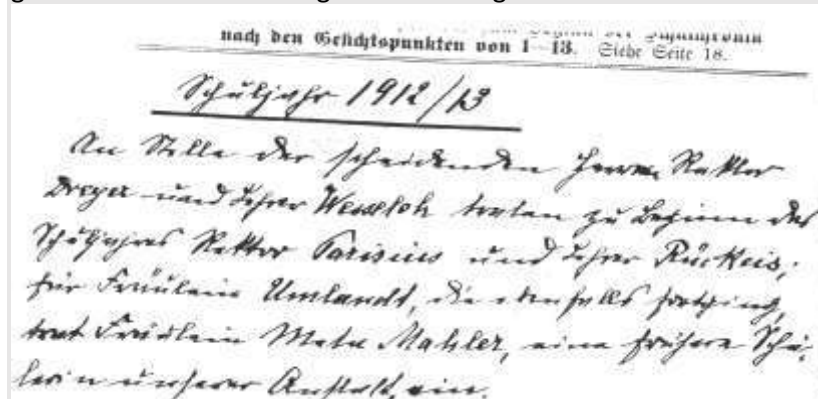 nach den Gesichtspunkten von 1–13. Siehe Seite 18.
Schuljahr 1912/13
An Stelle der scheidenden Herren Rektor
Dreyer und Lehrer Wesseloh traten zu Beginn des
Schuljahres Rektor Parisius und Lehrer Rückeis;
für Fräulein Umlandt, die ebenfalls fortging,
trat Fräulein Meta Mahler, eine frühere Schü-
lerin unserer Anstalt, ein.